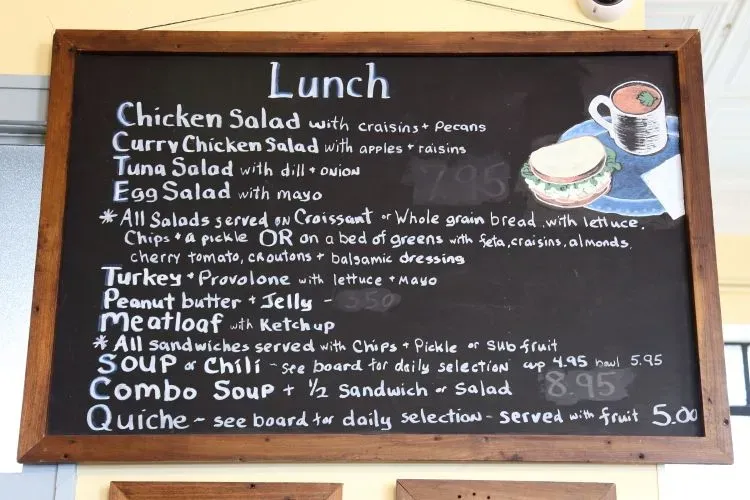 Lunch
Chicken Salad with craisins + Pecans
Curry Chicken Salad with apples + raisins
Tuna Salad with dill + onion
7.95
Egg Salad with mayo
* All Salads served on Croissant or Whole grain bread with lettuce,
Chips + a pickle OR on a bed of greens with feta, craisins, almonds,
cherry tomato, croutons + balsamic dressing
Turkey + Provolone with lettuce + mayo
Peanut butter + Jelly - 3.50
Meatloaf with Ketchup
* All sandwiches served with Chips + Pickle or Sub fruit
Soup or Chili - see board for daily selection cup 4.95 bowl 5.95
Combo Soup + ½ Sandwich or Salad 8.95
Quiche - see board for daily selection - served with fruit 5.00